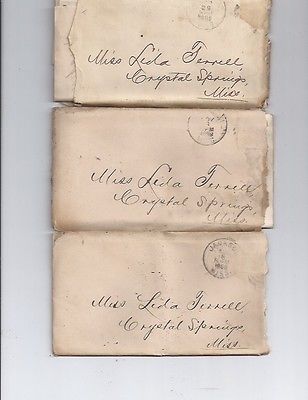 Miss Lida Terrell,
Crystal Springs,
Miss.
Miss Lida Terrell
Crystal Springs,
Miss.
Miss Lida Terrell,
Crystal Springs,
Miss.